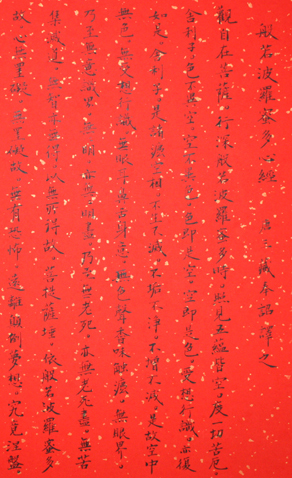 般若波羅蜜多心經 唐三藏奉詔譯之
觀自在菩薩。行深般若波羅蜜多時。照見五蘊皆空。度一切苦厄。
舍利子。色不異空。空不異色。色即是空。空即是色。受想行識。亦復
如是。舍利子。是諸法空相。不生不滅。不垢不淨。不增不減。是故空中
無色。無受想行識。無眼耳鼻舌身意。無色聲香味觸法。無眼界。
乃至無意識界。無無明。亦無無明盡。乃至無老死。亦無老死盡。無苦
集滅道。無智亦無得。以無所得故。菩提薩埵。依般若波羅蜜多
故心無罣礙。無罣礙故。無有恐怖。遠離顛倒夢想。究竟涅槃。